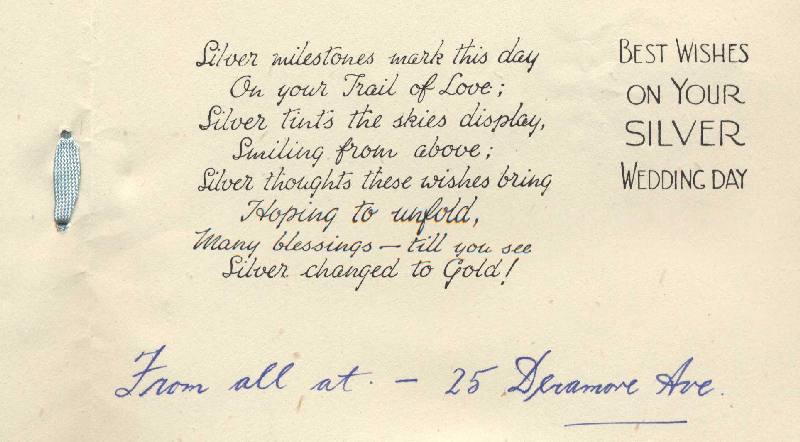 Silver milestones mark this day
On your Trail of Love;
Silver tints the skies display,
Smiling from above;
Silver thoughts these wishes bring
Hoping to unfold,
Many blessings — till you see
Silver changed to Gold!
BEST WISHES
ON YOUR
SILVER
WEDDING DAY
From all at. — 25 Deramore Ave.